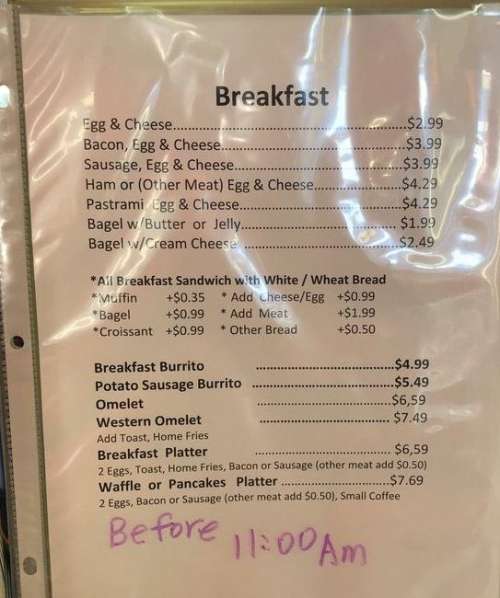 Breakfast
Egg & Cheese.......................................................$2.99
Bacon, Egg & Cheese...........................................$3.99
Sausage, Egg & Cheese........................................$3.99
Ham or (Other Meat) Egg & Cheese....................$4.29
Pastrami Egg & Cheese.......................................$4.29
Bagel w/Butter or Jelly.......................................$1.99
Bagel w/Cream Cheese.......................................$2.49
*All Breakfast Sandwich with White / Wheat Bread
*Muffin +$0.35 * Add Cheese/Egg +$0.99
*Bagel +$0.99 * Add Meat +$1.99
*Croissant +$0.99 * Other Bread +$0.50
Breakfast Burrito ....................................$4.99
Potato Sausage Burrito ....................................$5.49
Omelet ....................................$6,59
Western Omelet ....................................$7.49
Add Toast, Home Fries
Breakfast Platter .................................... $6,59
2 Eggs, Toast, Home Fries, Bacon or Sausage (other meat add $0.50)
Waffle or Pancakes Platter .............................$7.69
2 Eggs, Bacon or Sausage (other meat add $0.50), Small Coffee
Before 11:00 Am